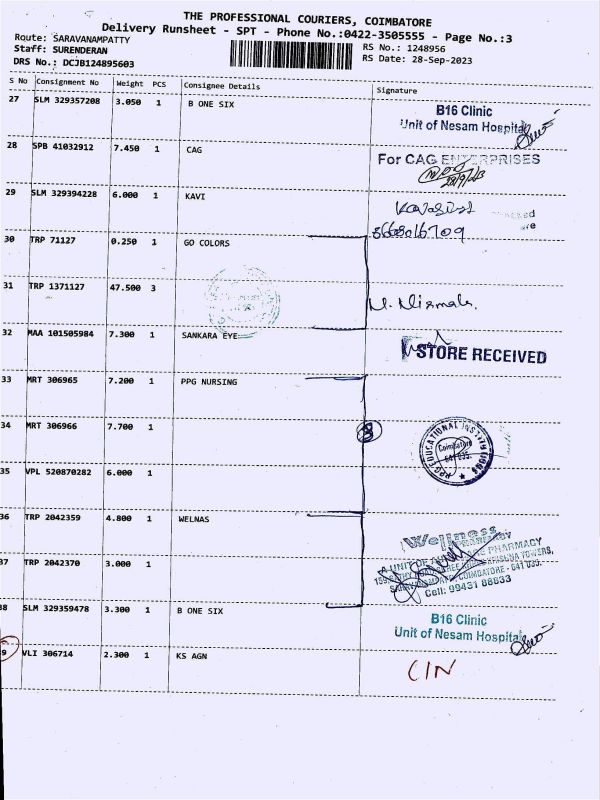 THE PROFESSIONAL COURIERS, COIMBATORE
Delivery Runsheet - SPT - Phone No.:0422-3505555 - Page No.:3
Route: SARAVANAMPATTY
RS No.: 1248956
Staff: SURENDERAN
RS Date: 28-Sep-2023
DRS No.: DCJB124895603
S No Consignment No Weight PCS Consignee Details Signature
27 SLM 329357208 3.050 1 B ONE SIX
B16 Clinic
Unit of Nesam Hospital
28 SPB 41032912 7.450 1 CAG
For CAG ENTERPRISES
29 SLM 329394228 6.000 1 KAVI
8668016709
30 TRP 71127 0.250 1 GO COLORS
31 TRP 1371127 47.500 3
M. Nirmala.
32 MAA 101505984 7.300 1 SANKARA EYE
STORE RECEIVED
33 MRT 306965 7.200 1 PPG NURSING
34 MRT 306966 7.700 1
PPG EDUCATIONAL INSTITUTIONS
Coimbatore
641 035.
35 VPL 520870282 6.000 1
36 TRP 2042359 4.800 1 WELNAS
Wellness
37 TRP 2042370 3.000 1
A UNIT OF PHARMACY
TOWERS,
COIMBATORE - 641 035.
Cell: 99431 88833
38 SLM 329359478 3.300 1 B ONE SIX
B16 Clinic
Unit of Nesam Hospital
9 VLI 306714 2.300 1 KS AGN
CIN